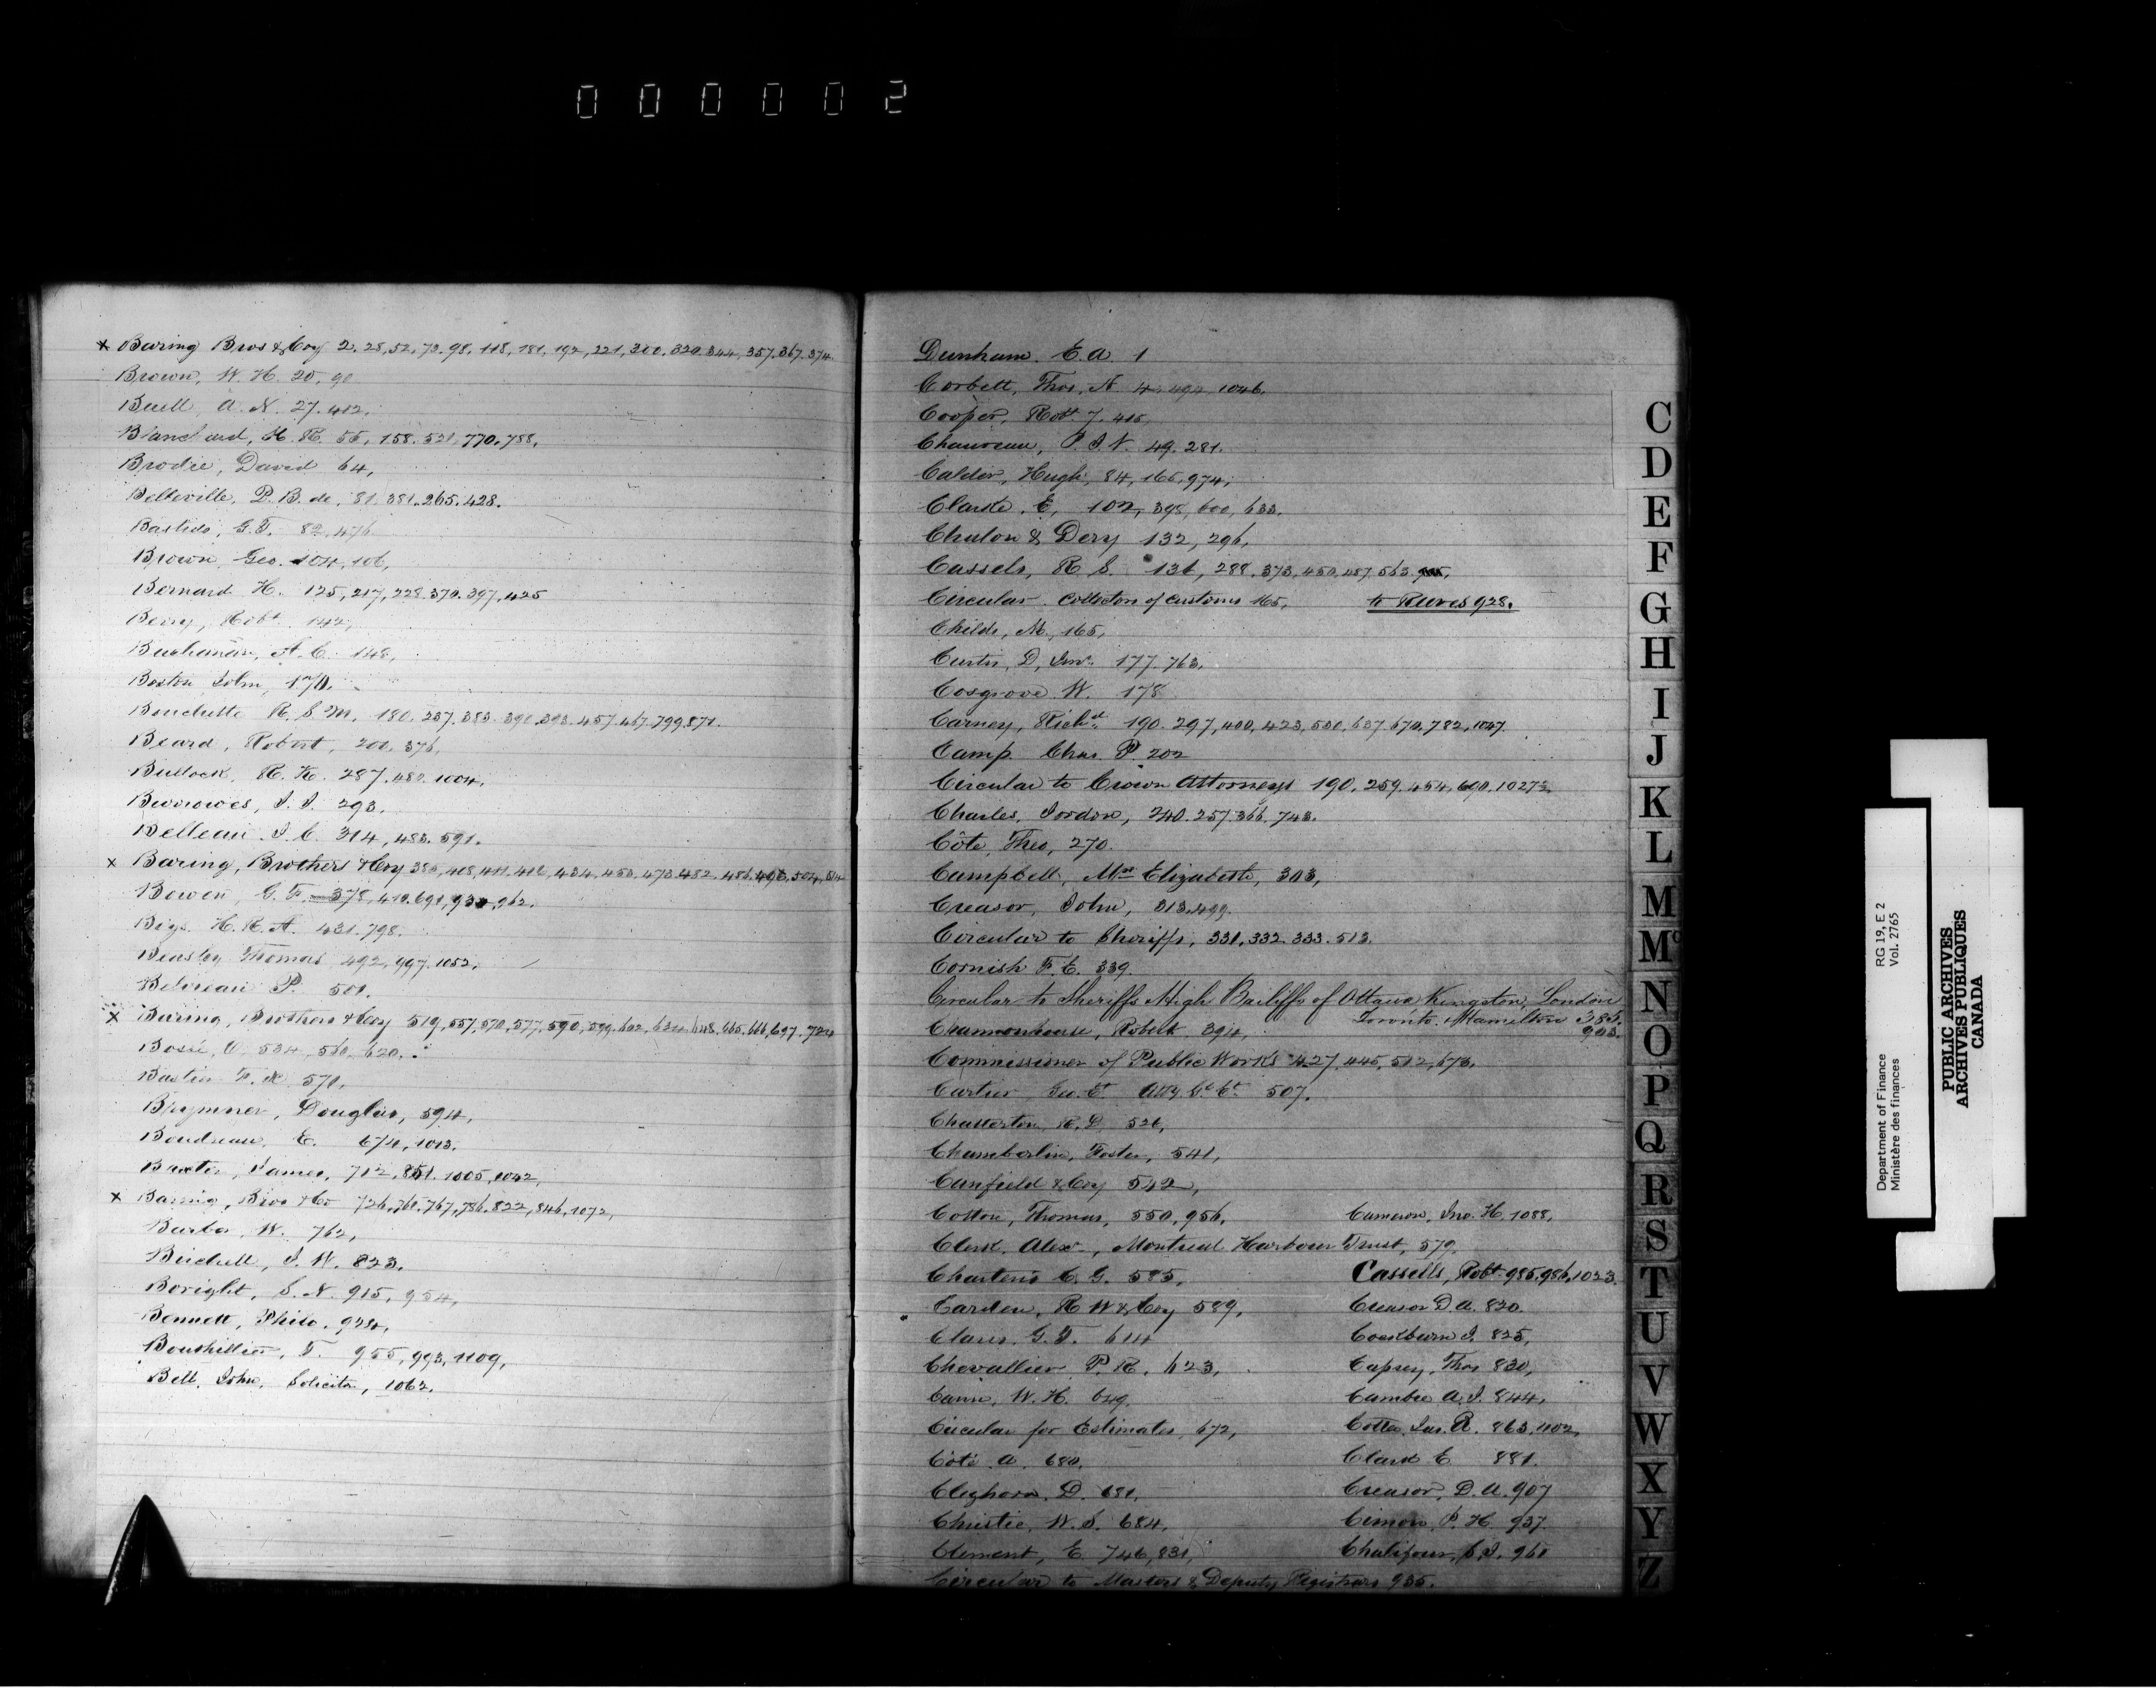 000002
x Baring Bros & Coy 2. 28, 52, 73. 98. 118, 181, 192, 221, 300. 320. 344, 357. 367. 374.
Brown, W. H. 20, 90
Buell, A. N. 27. 412,
Blanchard, H. R. 55, 158. 521, 770, 788,
Brodie, David 64,
Belleville, P. B. de, 81, 381. 265. 428.
G. T. 82, 476
Brown, Geo. 104, 106,
Bernard H. 125, 217, 228. 370. 397, 425
Berry, Robt 142,
Buchanan, A. C. 148,
Boston John, 170.
Bouchette R. S. M. 180. 237. 383. 390. 393. 457. 467. 799. 871.
Beard, Robert, 200, 376,
Bullock, R. H. 287. 482. 1004.
Burrowes, J. J. 293.
Belleau. J. C. 314, 483. 591.
x Baring, Brothers & Coy 380, 408, 411, 416, 434, 453, 473. 482. 486. 496, 504,
Bowen, G. F. 378, 410. 691, 962.
H. R. A. 431. 798.
Beasley Thomas 492, 997. 1052.
P. 501.
x Baring, Brothers & Coy 519, 557, 570, 577, 590, 599. 602, 648, 665. 666, 697. 724
534, 560, 620.
571,
Brymner, Douglas, 594,
Boudreau, E. 674, 1013.
Baxter, James, 712, 851. 1005, 1042,
x Baring, Bros & Co 726, 761. 767, 786. 822, 846, 1072,
W. 762,
J. W. 823.
Boright, S. N. 915, 954,
Bennett, Philo. 924,
Bouthillier, T. 955, 993, 1109,
Bell, John, Solicitor, 1062.
Dunham. E. A. 1
Corbett, Thos. N. 4. 494. 1046.
Cooper, Robt 7. 415,
Chauveau, P. J. N. 49. 281.
Calder, Hugh, 84, 165, 974,
Clarke, E, 102, 398, 600, 633.
Chalon & Dery 132, 296,
Cassels, R. S. 131, 288. 373, 450, 487, 563.
Circular. Collectors of Customs 165, to Reeves 928.
Childs, M. 165,
Curtis, D, Jnr. 177. 763,
Cosgrove W. 178
Carney, Richd. 190. 297, 400, 423, 530. 637. 670, 782, 1047.
Camp. Chas. P. 202
Circular to Crown Attorneys 190. 259. 454, 690. 1027½
Charles, Jordon, 240. 257. 366. 743.
Côte, Theo, 270.
Campbell, Mrs Elizabeth, 303,
Creasor, John, 313. 499.
Circular to Sheriffs, 331, 332. 333. 513.
Cornish F. E. 339.
Circular to Sheriffs High Bailiffs of Ottawa Kingston, London
Toronto. Hamilton 385.
903.
Robert 394,
Commissioner of Public Works 427, 445, 512, 673.
Cartier, Geo. Et Atty Gl Ct. 507.
Chatterton, R. D. 526,
Chamberlin, Foster, 541,
Canfield & Coy 542,
Cotton, Thomas, 550, 956. Cameron, Jno. H. 1088.
Clerk, Alexr., Montreal Harbour Trust, 579.
Charteris C. G. 585, Cassells, Robt. 985. 986, 1023.
Carden, R W & Coy 589, Creasor D. A. 820.
G. T. 614 Cockburn J. 825,
Chevallier P. R. 623, Caprey, Thos 830,
W. H. 649. A. J. 844,
Circular for Estimates, 672, Cotter, Jas. R. 863, 1102,
Côté A. 680. Clark E 881.
Cleghorn. D. 681. Creasor, D. A. 907
Christie, W. J. 684, Cimon, P. H. 937.
Clement, E. 746, 831, Chalifour, 960
Circular to Masters & Deputy Registrars 935.
C
D
E
F
G
H
I
J
K
L
M
Mc
N
O
P
Q
R
S
T
U
V
W
X
Y
Z
Department of Finance RG 19, E 2
Ministère des finances Vol. 2765
PUBLIC ARCHIVES
ARCHIVES PUBLIQUES
CANADA